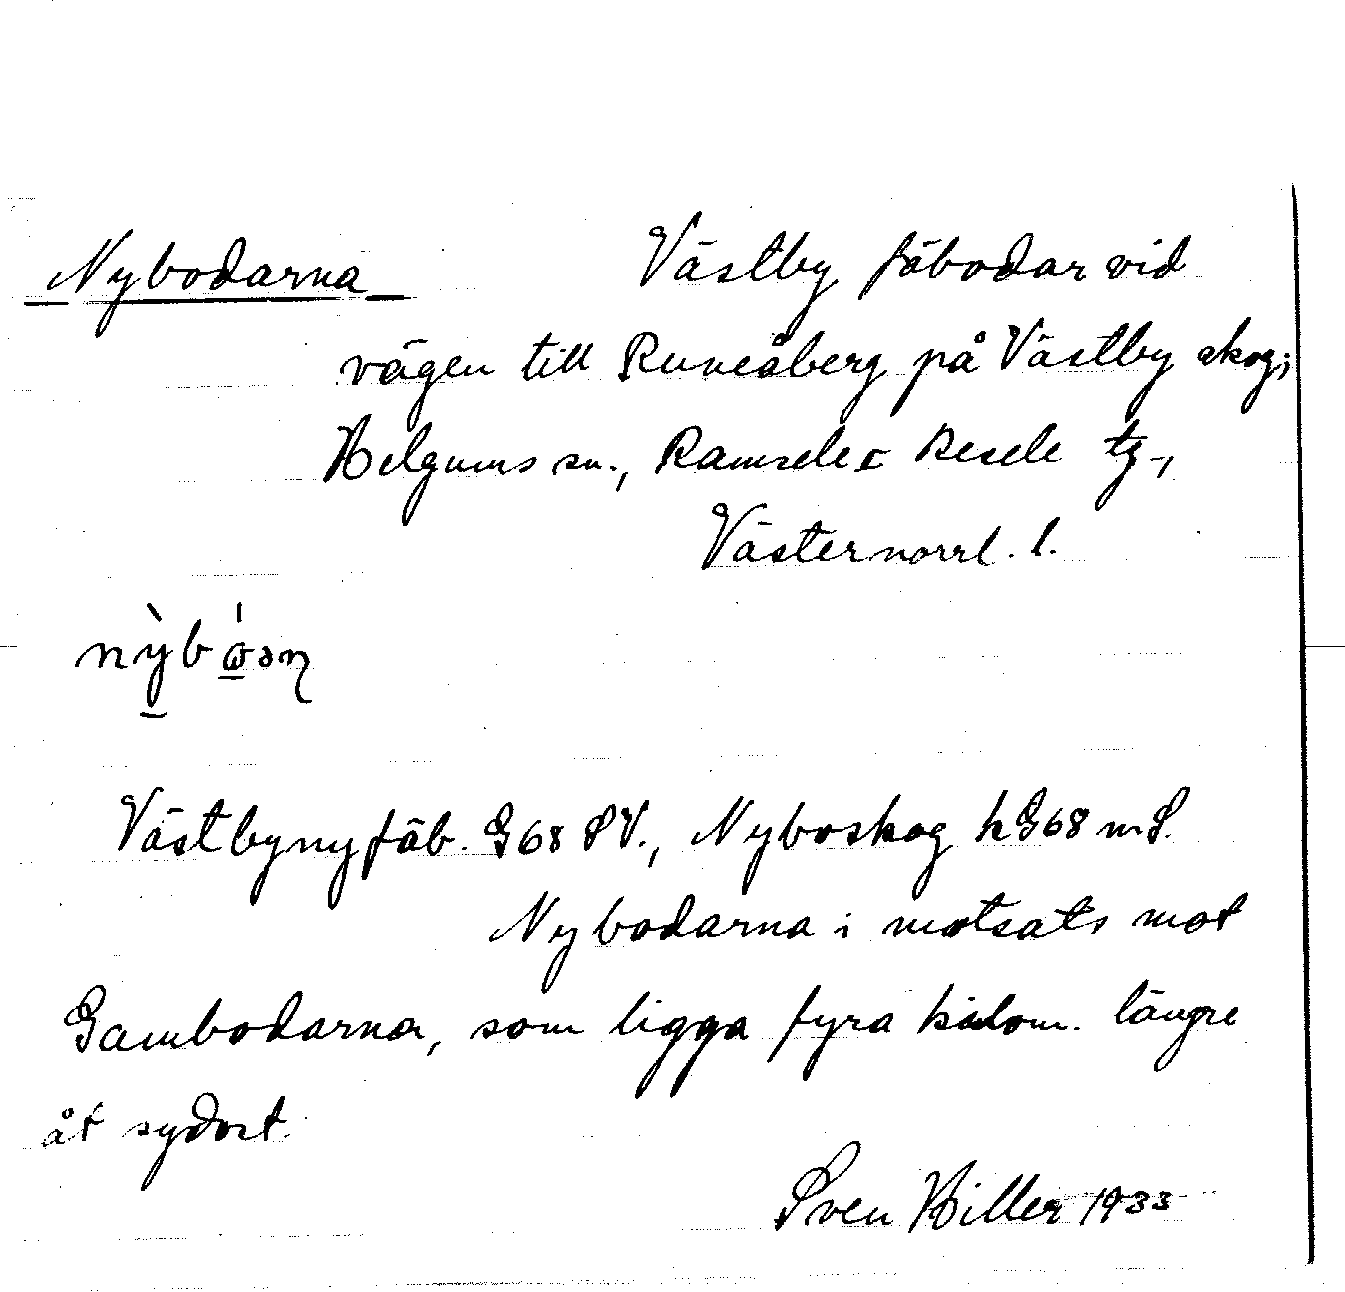 Nybodarna Västby fäbodar vid
vägen till Runeåberg på Västby skog;
Helgums sn., Ramsele o Resele tg.,
Västernorrl. l.
Västbynyfäb. G68 SV., Nyboskog hG68 m S.
Nybodarna i motsats mot
Gambodarna, som ligga fyra kilom. längre
åt sydost.
Sven Hiller 1933